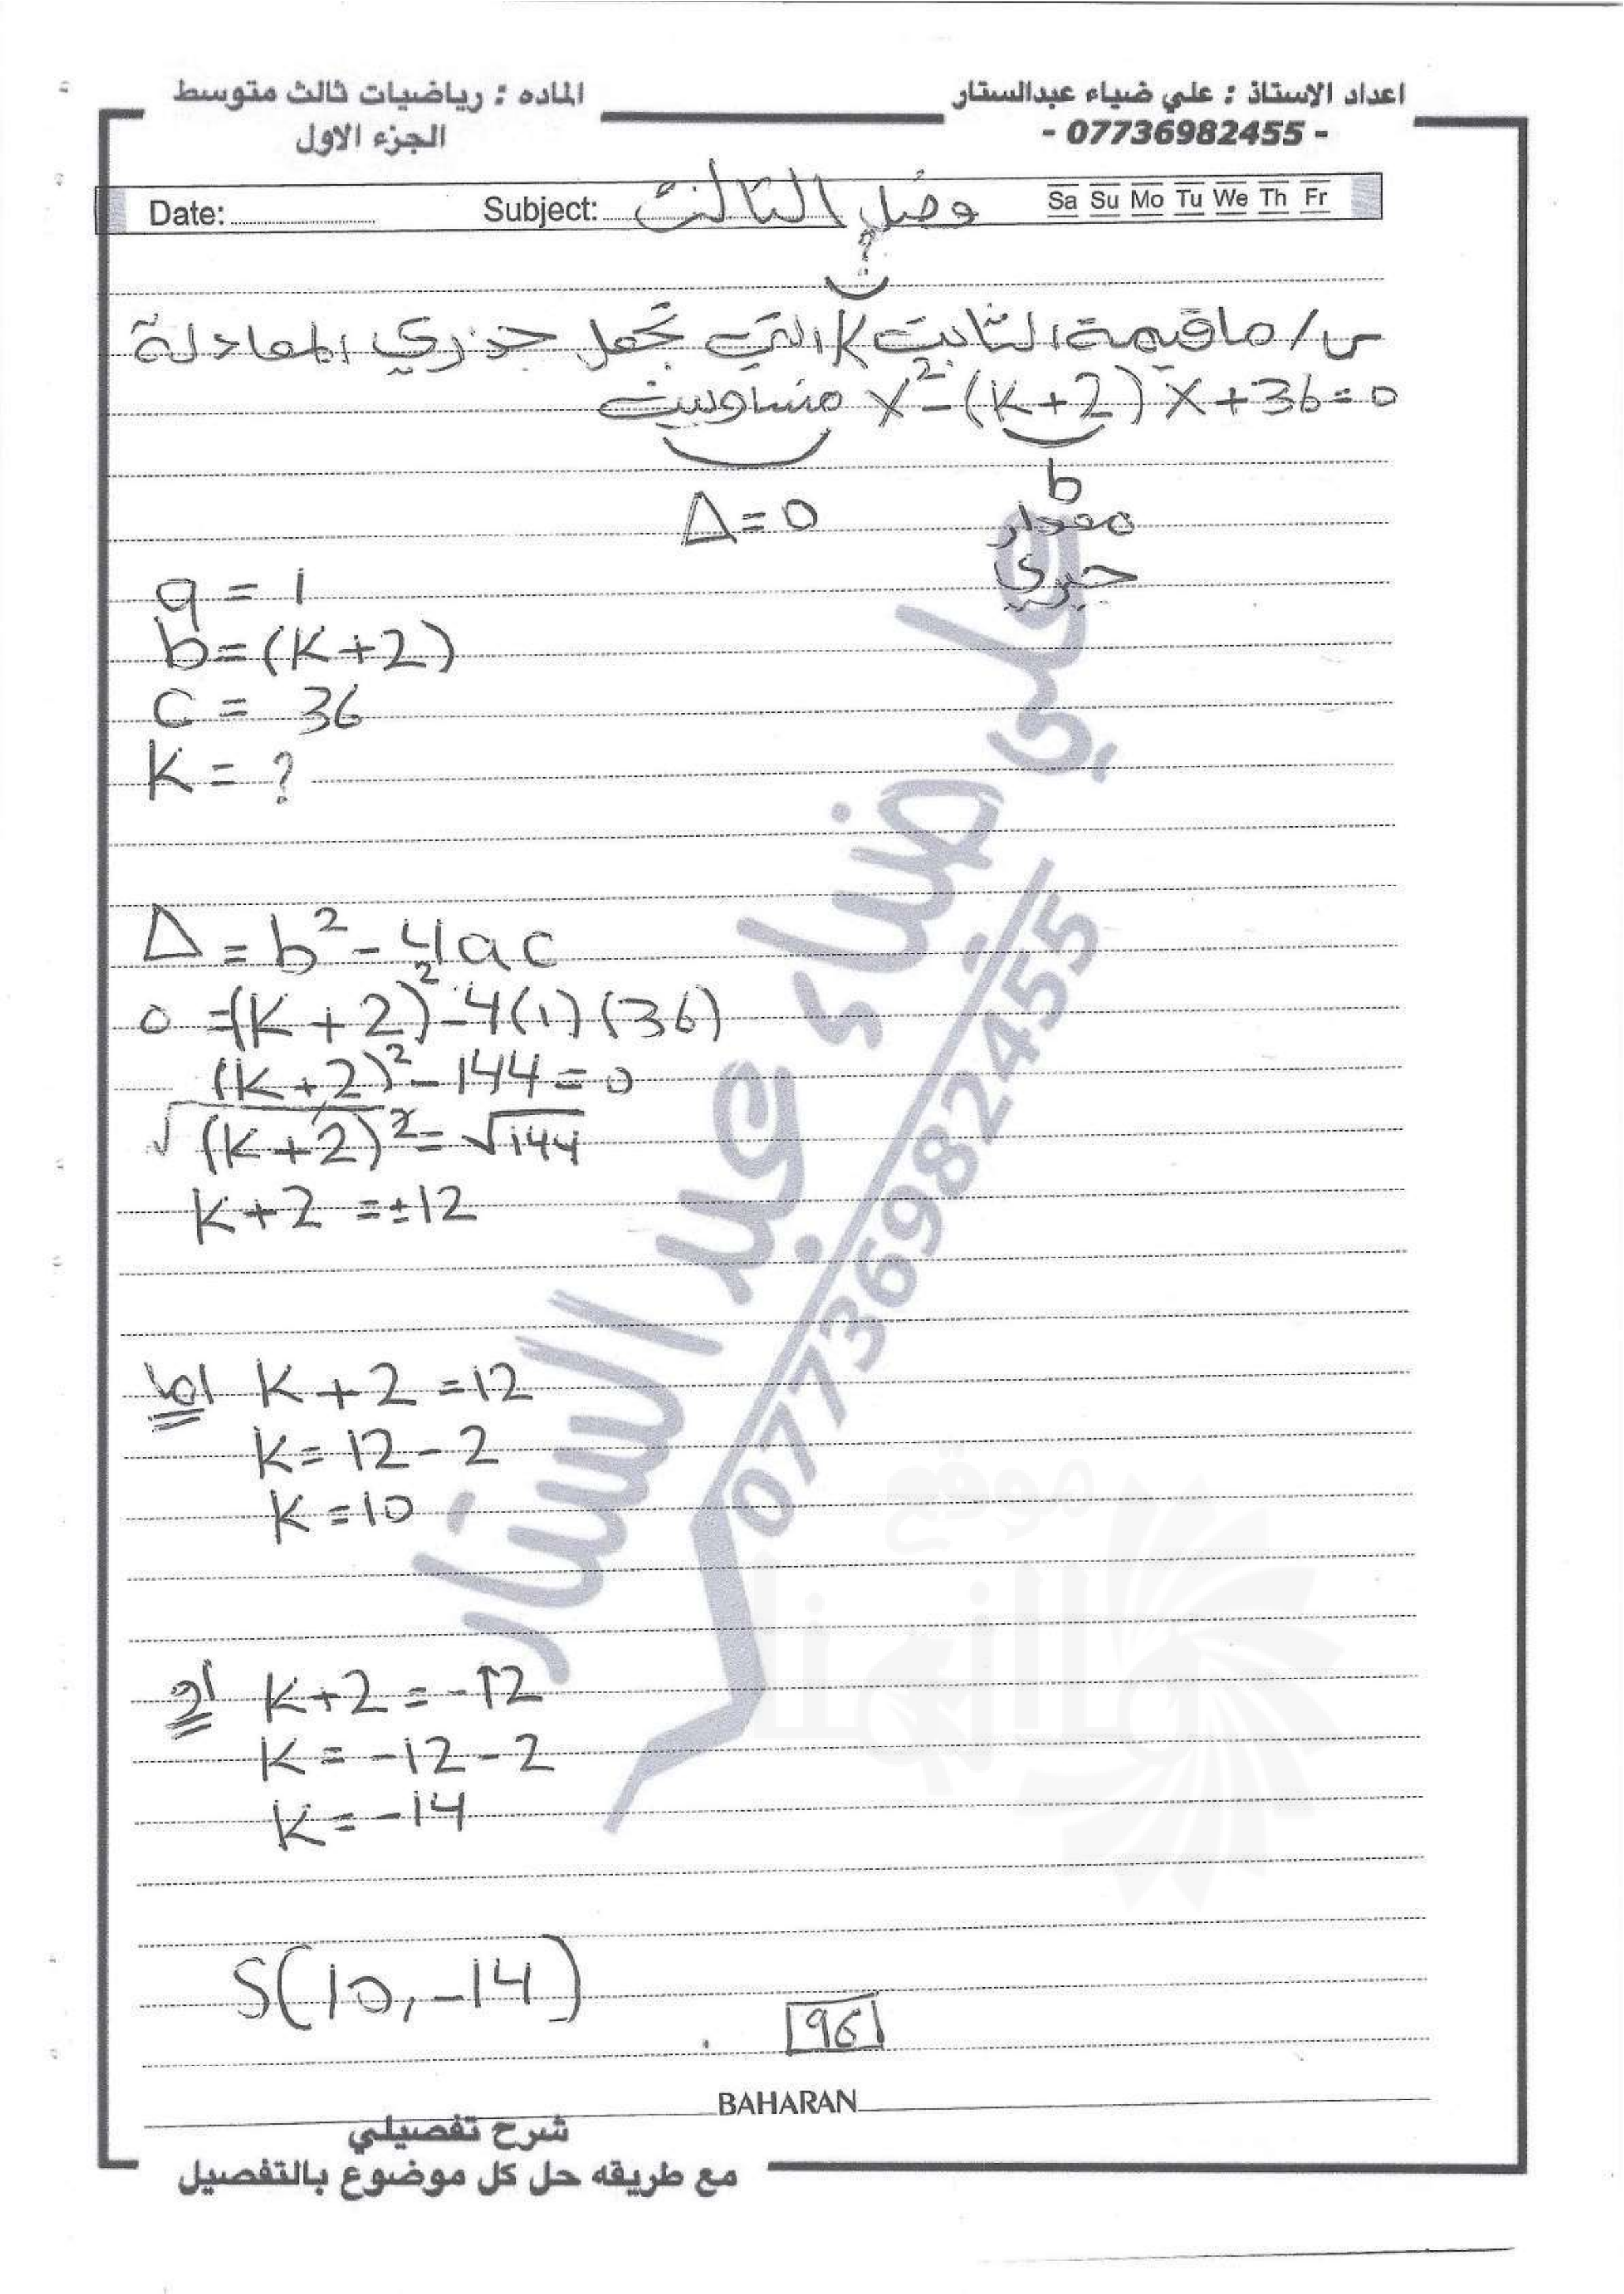 اعداد الاستاذ : علي ضياء عبدالستار
- 07736982455 -
الماده : رياضيات ثالث متوسط
الجزء الاول
Date: Subject: فصل الثالث Sa Su Mo Tu We Th Fr
؟
س/ ما قيمة الثابت K التي تجعل جذري المعادلة
x²-(K+2)x+36=0 متساويين
b
مقدار
جبري
Δ=0
a = 1
b=(K+2)
C = 36
K = ?
Δ = b² - 4ac
0 =(K+2)²-4(1)(36)
(K+2)²-144=0
√(K+2)² = √144
K+2 = ±12
اما K+2=12
K=12-2
K=10
او K+2=-12
K=-12-2
K=-14
S(10,-14)
96
BAHARAN
شرح تفصيلي
مع طريقه حل كل موضوع بالتفصيل
علي ضياء عبد الستار
07736982455
موقع